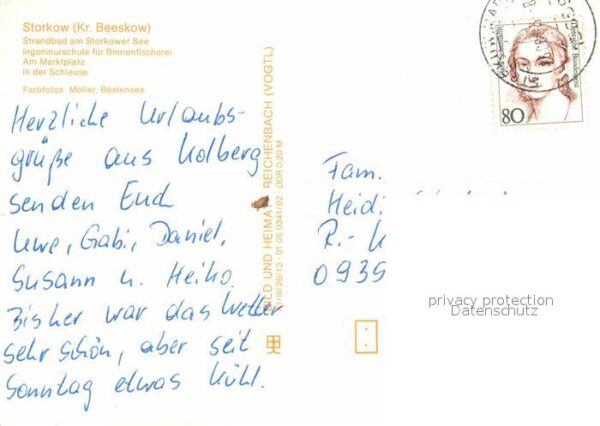 Storkow (Kr. Beeskow)
Strandbad am Storkower See
Ingenieurschule für Binnenfischerei
Am Marktplatz
In der Schleuse
Farbfotos: Möller, Bestensee
Herzliche Urlaubs-
grüße aus Kolberg
senden Euch
Uwe, Gabi, Daniel,
Susann u. Heiko.
Bisher war das Wetter
sehr schön, aber seit
Sonntag etwas kühl.
BILD UND HEIMAT REICHENBACH (VOGTL)
01 05 0341/02 · DDR 0,20 M
80
Deutsche Bundespost
Fam.
Heid
R.-
0935
privacy protection
Datenschutz